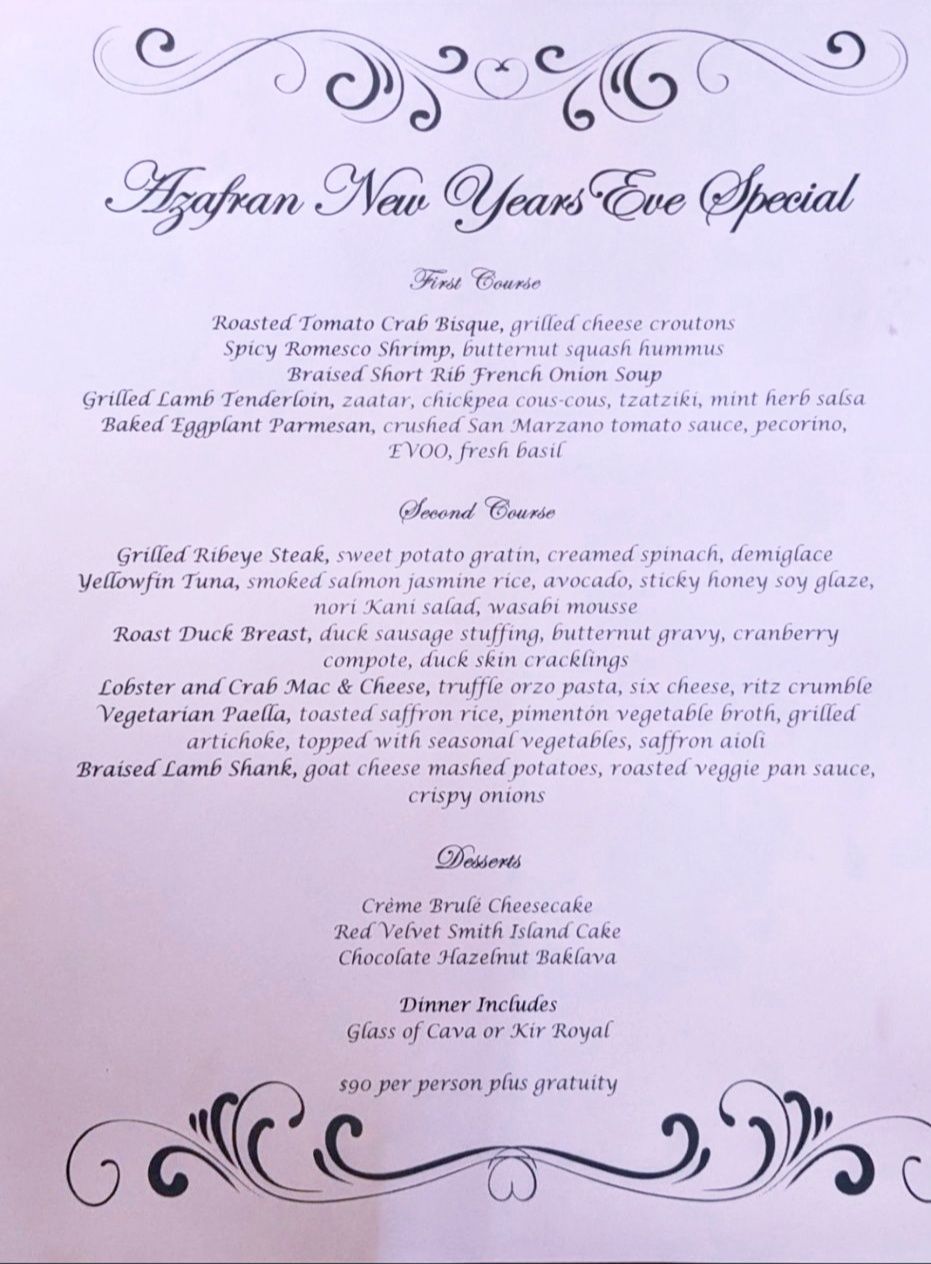 Azafran New Years Eve Special
First Course
Roasted Tomato Crab Bisque, grilled cheese croutons
Spicy Romesco Shrimp, butternut squash hummus
Braised Short Rib French Onion Soup
Grilled Lamb Tenderloin, zaatar, chickpea cous-cous, tzatziki, mint herb salsa
Baked Eggplant Parmesan, crushed San Marzano tomato sauce, pecorino,
EVOO, fresh basil
Second Course
Grilled Ribeye Steak, sweet potato gratin, creamed spinach, demiglace
Yellowfin Tuna, smoked salmon jasmine rice, avocado, sticky honey soy glaze,
nori Kani salad, wasabi mousse
Roast Duck Breast, duck sausage stuffing, butternut gravy, cranberry
compote, duck skin cracklings
Lobster and Crab Mac & Cheese, truffle orzo pasta, six cheese, ritz crumble
Vegetarian Paella, toasted saffron rice, pimentón vegetable broth, grilled
artichoke, topped with seasonal vegetables, saffron aioli
Braised Lamb Shank, goat cheese mashed potatoes, roasted veggie pan sauce,
crispy onions
Desserts
Crème Brulé Cheesecake
Red Velvet Smith Island Cake
Chocolate Hazelnut Baklava
Dinner Includes
Glass of Cava or Kir Royal
$90 per person plus gratuity